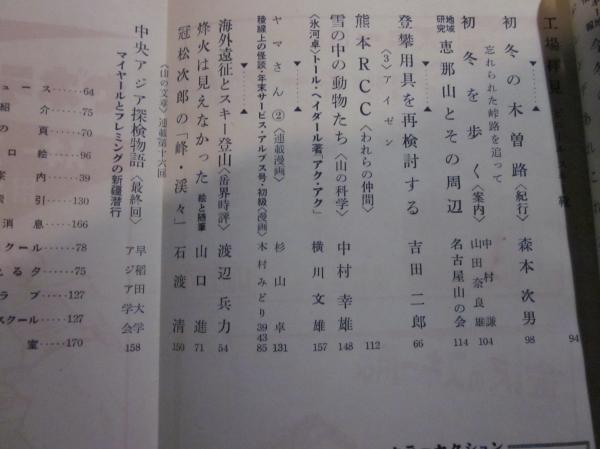 工場拝見
94
初冬の木曽路〈紀行〉 森本次男 98
忘れられた峠路を追って
初冬を歩く〈案内〉 中村謙 山田奈良雄 104
地域研究 恵那山とその周辺 名古屋山の会 114
登攀用具を再検討する 吉田二郎 66
〈3〉アイゼン
熊本RCC〈われらの仲間〉 112
雪の中の動物たち〈山の科学〉 中村幸雄 148
〈氷河卓〉トール・ヘイダール著「アク・アク」 横川文雄 157
ヤマさん②〈連載漫画〉 杉山卓 131
稜線上の怪談・年末サービス・アルプス号・初級〈漫画〉 木村みどり 39 43 85
海外遠征とスキー登山〈岳界時評〉 渡辺兵力 54
烽火は見えなかった 絵と随筆 山口進 71
冠松次郎の「峰・渓々」 石渡清 150
〈山の文章〉連載第十六回
中央アジア探検物語〈最終回〉 早稲田大学アジア学会 158
マイヤールとフレミングの新疆潜行
ュース……64
紹介……75
の頁……70
口絵……96
案内……39
索引……130
消息……166
クール……78
える夕……75
ラブ……127
スクール……127
室……170